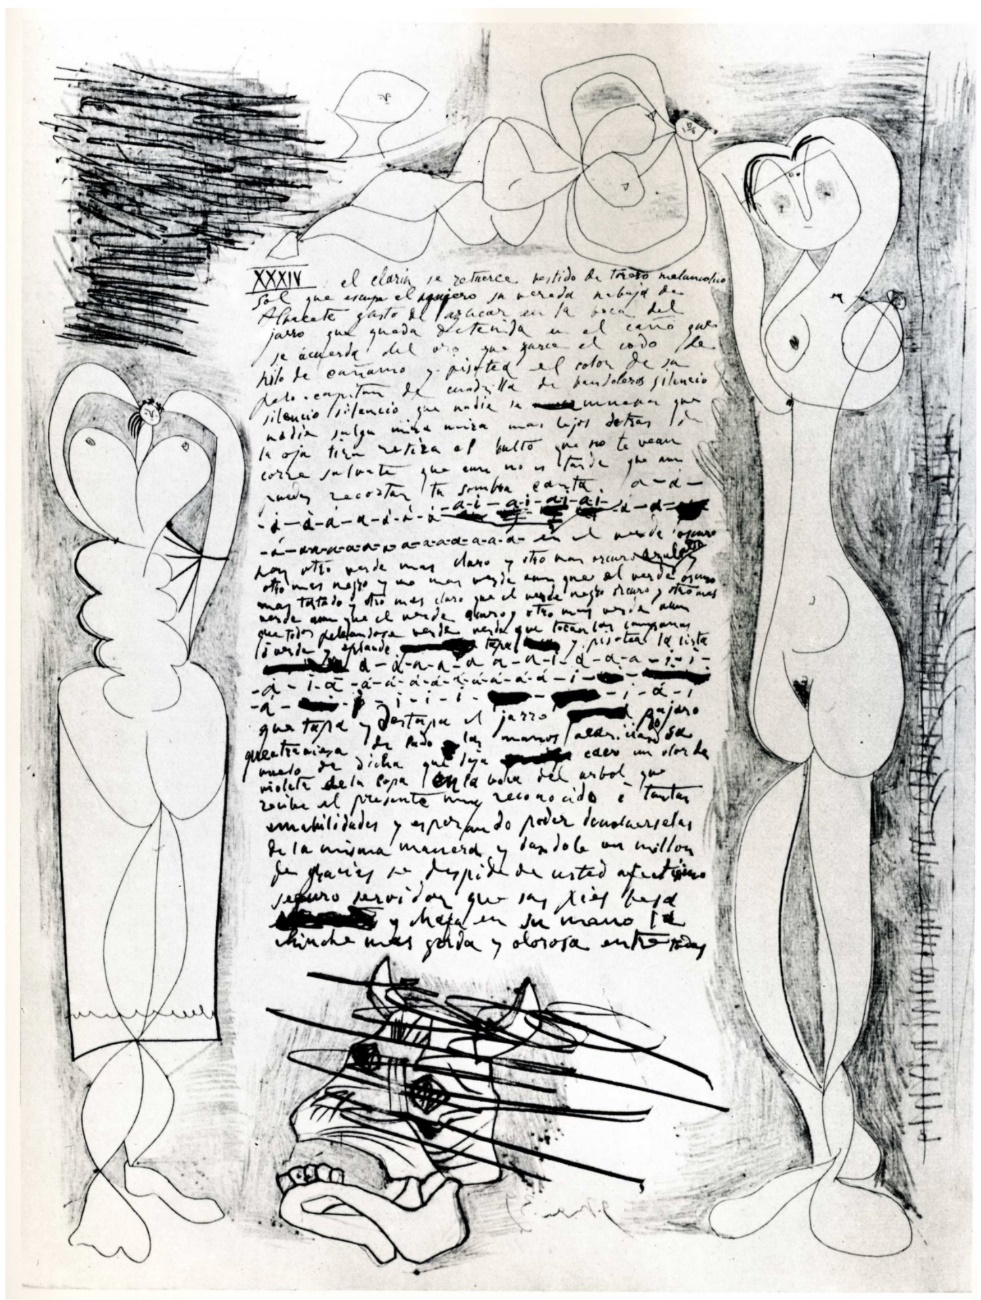 XXXIV el clarin se retuerce vestido de torero melancolico
sol que escupe el agujero su vereda nabaja de
Albacete gusto del azucar en la boca del
jarro que queda detenida en el caño que
se acuerda del oro que zurce el codo de
hilo de cañamo y pisotea el color de su
pelo capitan de cuadrilla de bandoleros silencio
silencio silencio que nadie se que
nadie salga mira mira mas lejos detras de
la oja tira retira el bulto que no te vean
corre salvate que aun no es tarde que aun
puedes recortar tu sombra canta a-a-
-a-a-a-a-a-a-a -a-i-a-i-ai-ai- a-a-
-a-a-a-a-a-a-a-a-a-a-a-a- en el verde oscuro
hay otro verde mas claro y otro mas oscuro azulado
otro mas negro y uno mas verde aun que el verde oscuro
mas tostado y otro mas claro que el verde negro oscuro y otro mas
verde aun que el verde y otro mas verde aun
que todos peleandose verde verde que tocan las campanas
lo verde y aplaude tapa y pisotea la lista
a-a-a-a-a-a-a-i-a-a-a-i-i-
-a-i-a-a-a-a-a-a-a-a-a-i-
-a- i-i-i -i-a-i
que tapa y destapa el jarro pajaro
que atraviesa de las manos acariciando
vuelo de dicha que deja caer un olor de
violeta de la copa en la vera del arbol que
recibe el presente muy reconocido a tantas
amabilidades y esperando poder devolverselas
de la misma manera y dandole un millon
de gracias se despide de usted afectisimo
seguro servidor que sus pies besa
y deja en su mano la
chinche mas gorda y olorosa entre todas